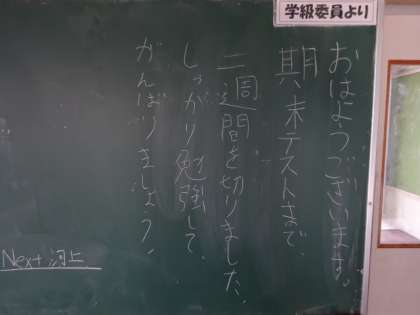 学級委員より
おはようございます。
期末テストまで、
二週間を切りました。
しっかり勉強して、
がんばりましょう!
Next 河上